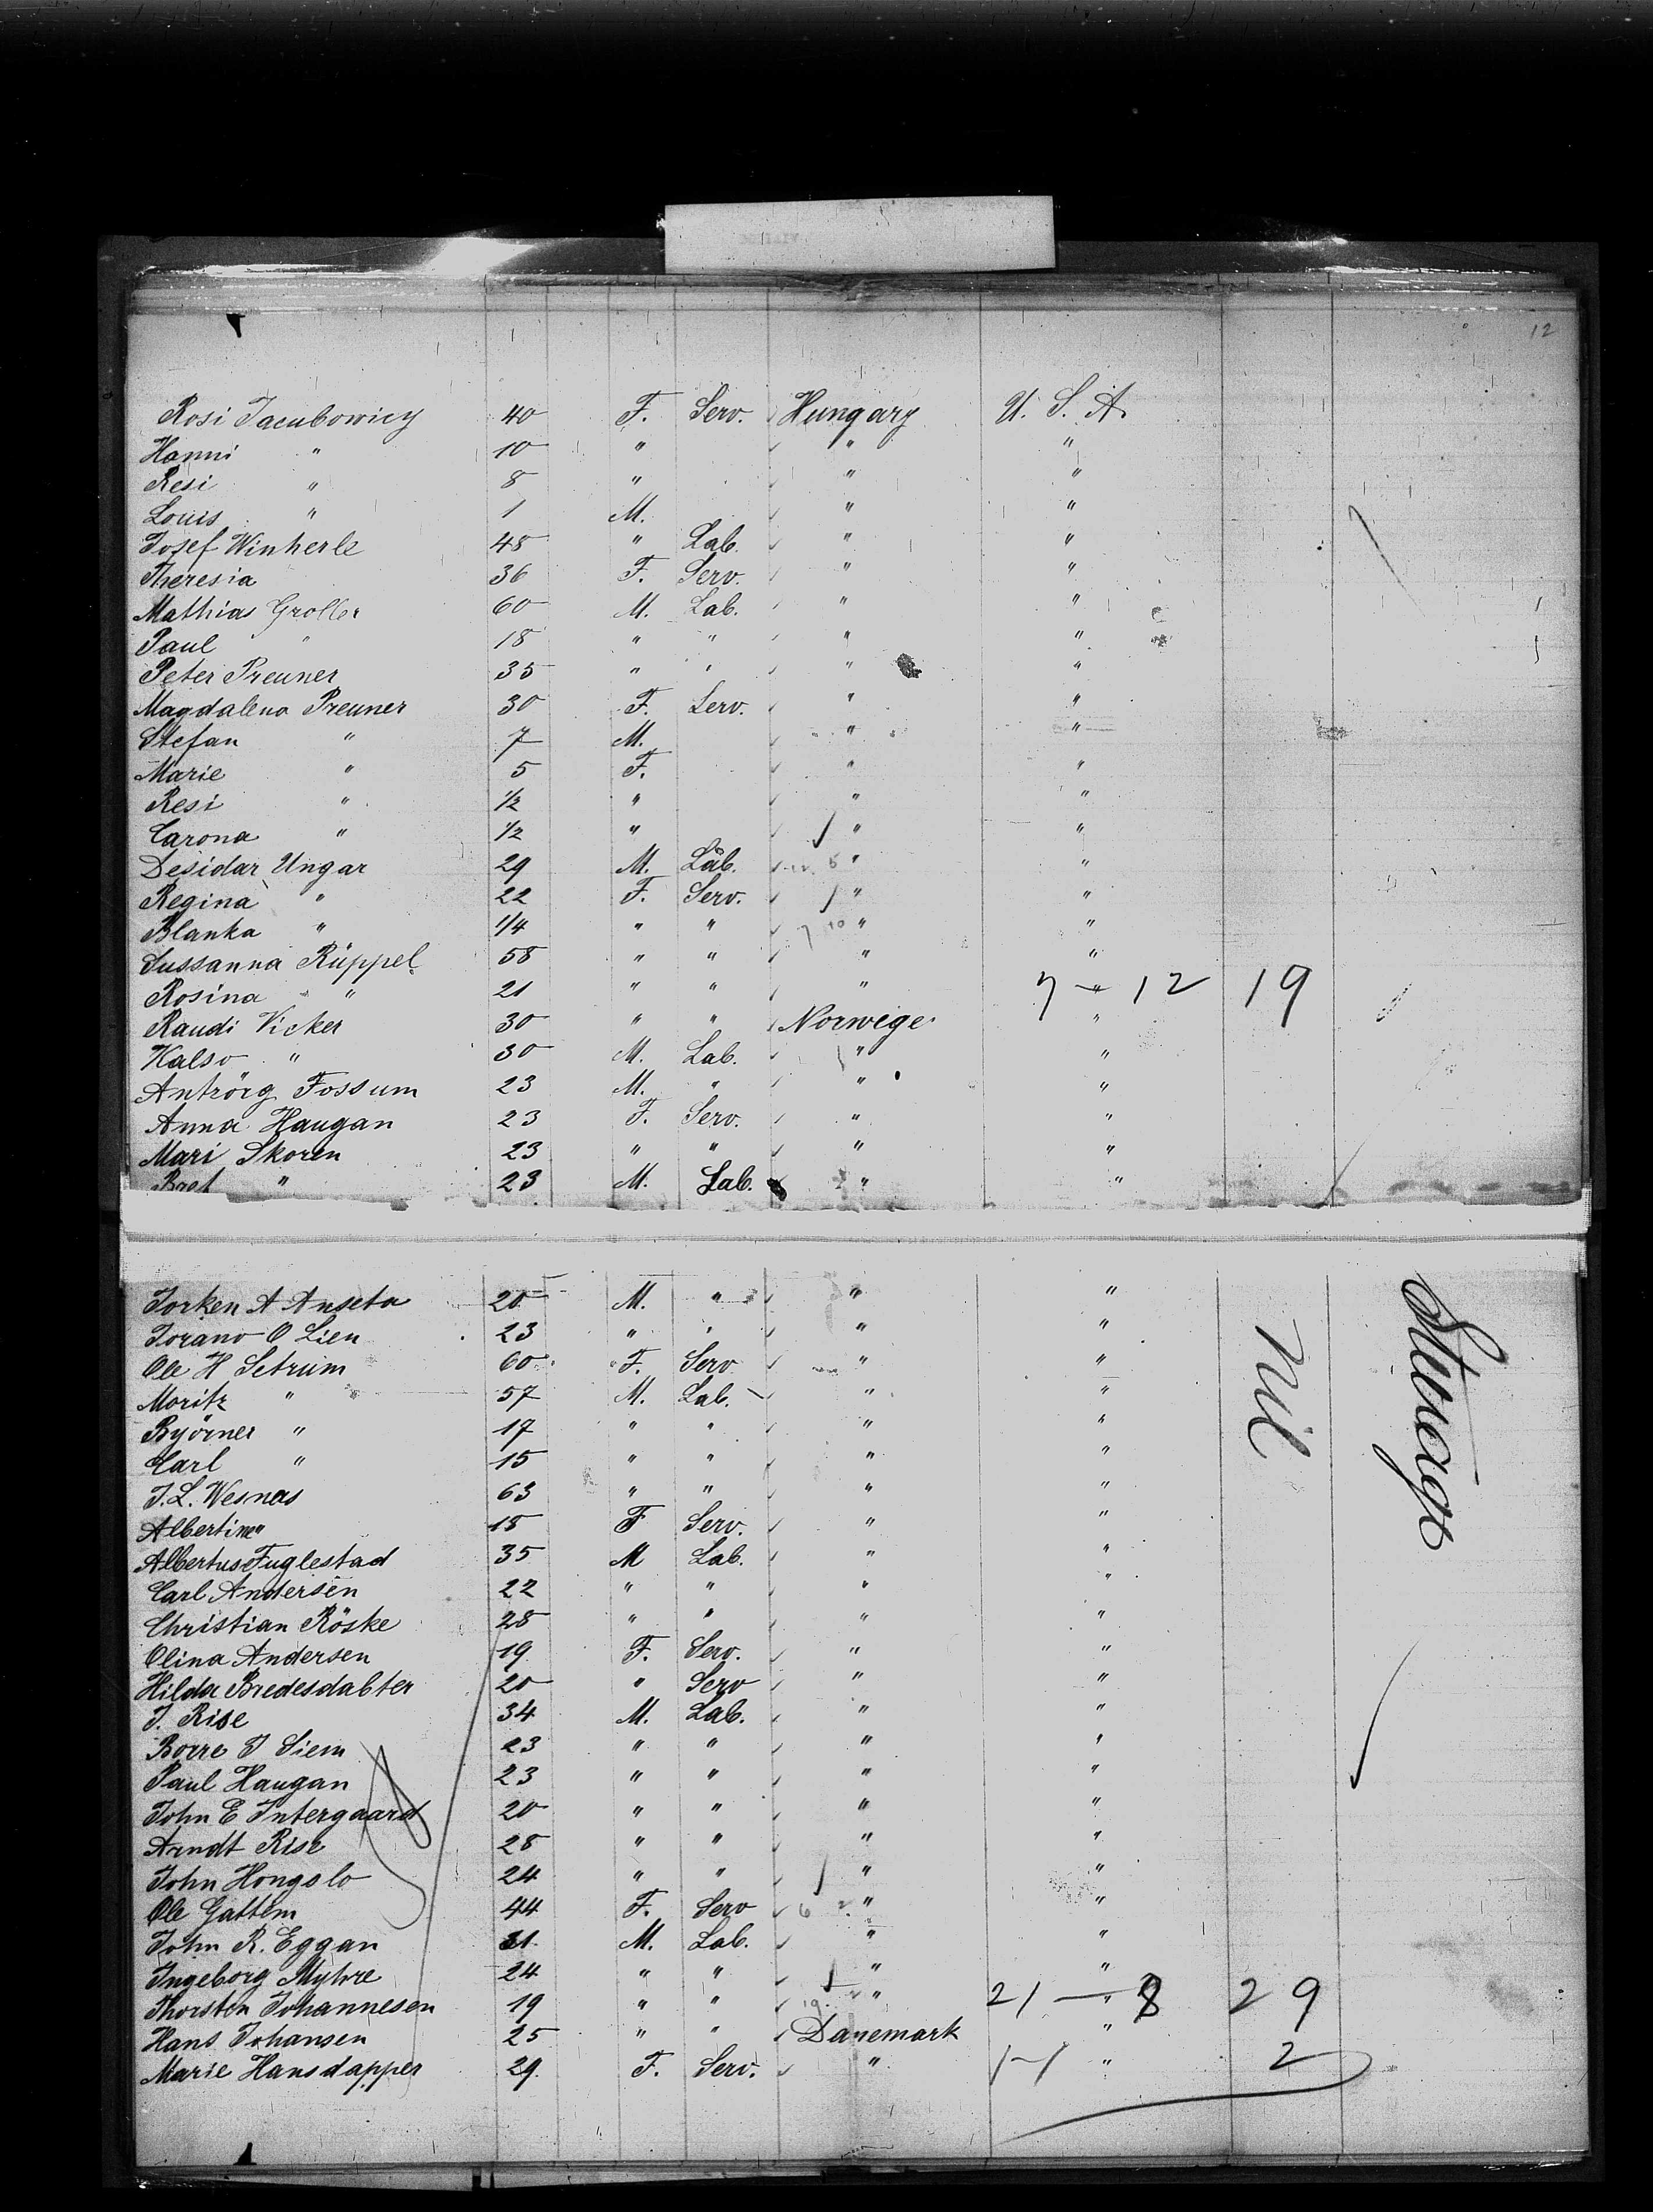 12
Rosi Jacubowicy 40 F. Serv. Hungary U. S. A.
Hanni " 10 " " "
Resi " 8 " " "
Louis " 1 M. " "
Josef Winherle 45 " Lab. " "
Theresia 36 F. Serv. " "
Mathias Groller 60 M. Lab. " "
Paul " 18 " " " "
Peter Preuner 35 " " " "
Magdalena Preuner 30 F. Serv. " "
Stefan " 7 M. " "
Marie " 5 F. " "
Resi " 1/2 " " "
Carona " 1/2 " " "
Desidar Ungar 29 M. Lab. " "
Regina " 22 F. Serv. " "
Blanka " 1/4 " " 10 " "
Sussanna Rüppel 58 " " " "
Rosina " 21 " " " 7 - " 12 19
Raudi Vicker 30 " " Norwege "
Halso " 30 M. Lab. " "
Antrörg Fossum 23 M. " " "
Anna Haugan 23 F. Serv. " "
Mari Skoren 23 " " " "
Bret " 23 M. Lab. " "
Torken A Anseta 20 M. " " "
Torano O Lien 23 " " " "
Ole H Setrum 60 F. Serv " "
Moritz " 57 M. Lab. " "
Byörner " 17 " " " "
Carl " 15 " " " "
J. L. Wesnas 63 " " " "
Albertine " 18 F Serv. " "
Albertus Fuglestad 35 M Lab. " "
Carl Andersen 22 " " " "
Christian Röske 28 " " " "
Olina Andersen 19 F. Serv. " "
Hilda Bredesdabter 20 " Serv " "
J. Rise 34 M. Lab. " "
Borre J Siem 23 " " " "
Paul Haugan 23 " " " "
John E Intergaard 20 " " " "
Arndt Rise 28 " " " "
John Hongslo 24 " " " "
Ole Gattem 44 F. Serv 6 " "
John R. Eggan 31 M. Lab. " "
Ingeborg Myhre 24 " " " "
Thorsten Johannesen 19 " " " 21 — " 8 29
Hans Johansen 25 " " Danemark "
Marie Hansdapper 29 F. Serv. " 1-1 " 2
nil